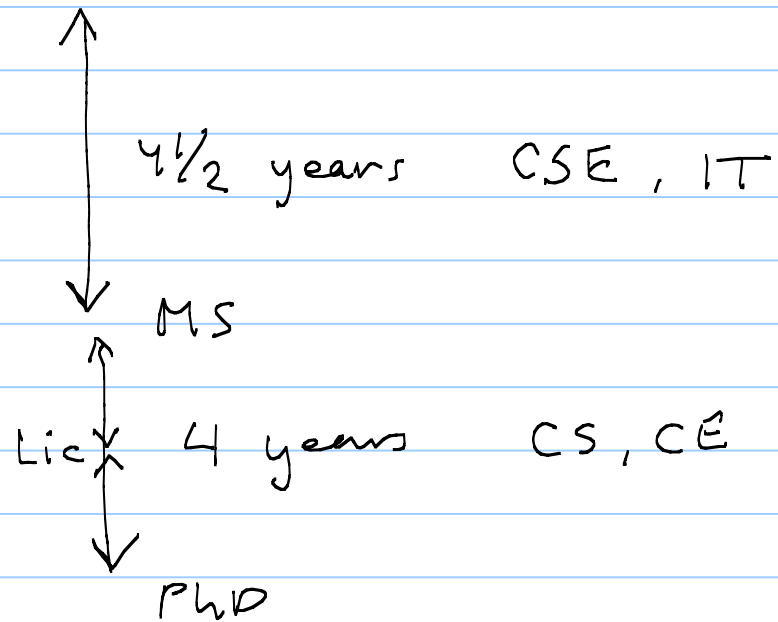 4 1/2 years CSE, IT
MS
Lic 4 years CS, CE
PhD